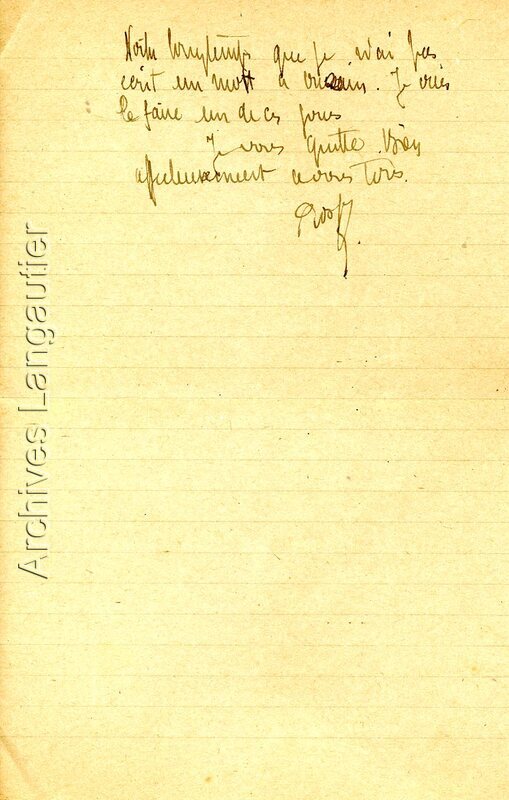 Voila longtemps que je n'ai pas
écrit un mot a cousin. Je vais
le faire un de ces jours
Je vous quitte. Bien
affectueusement a vous tous.
Archives Langautier